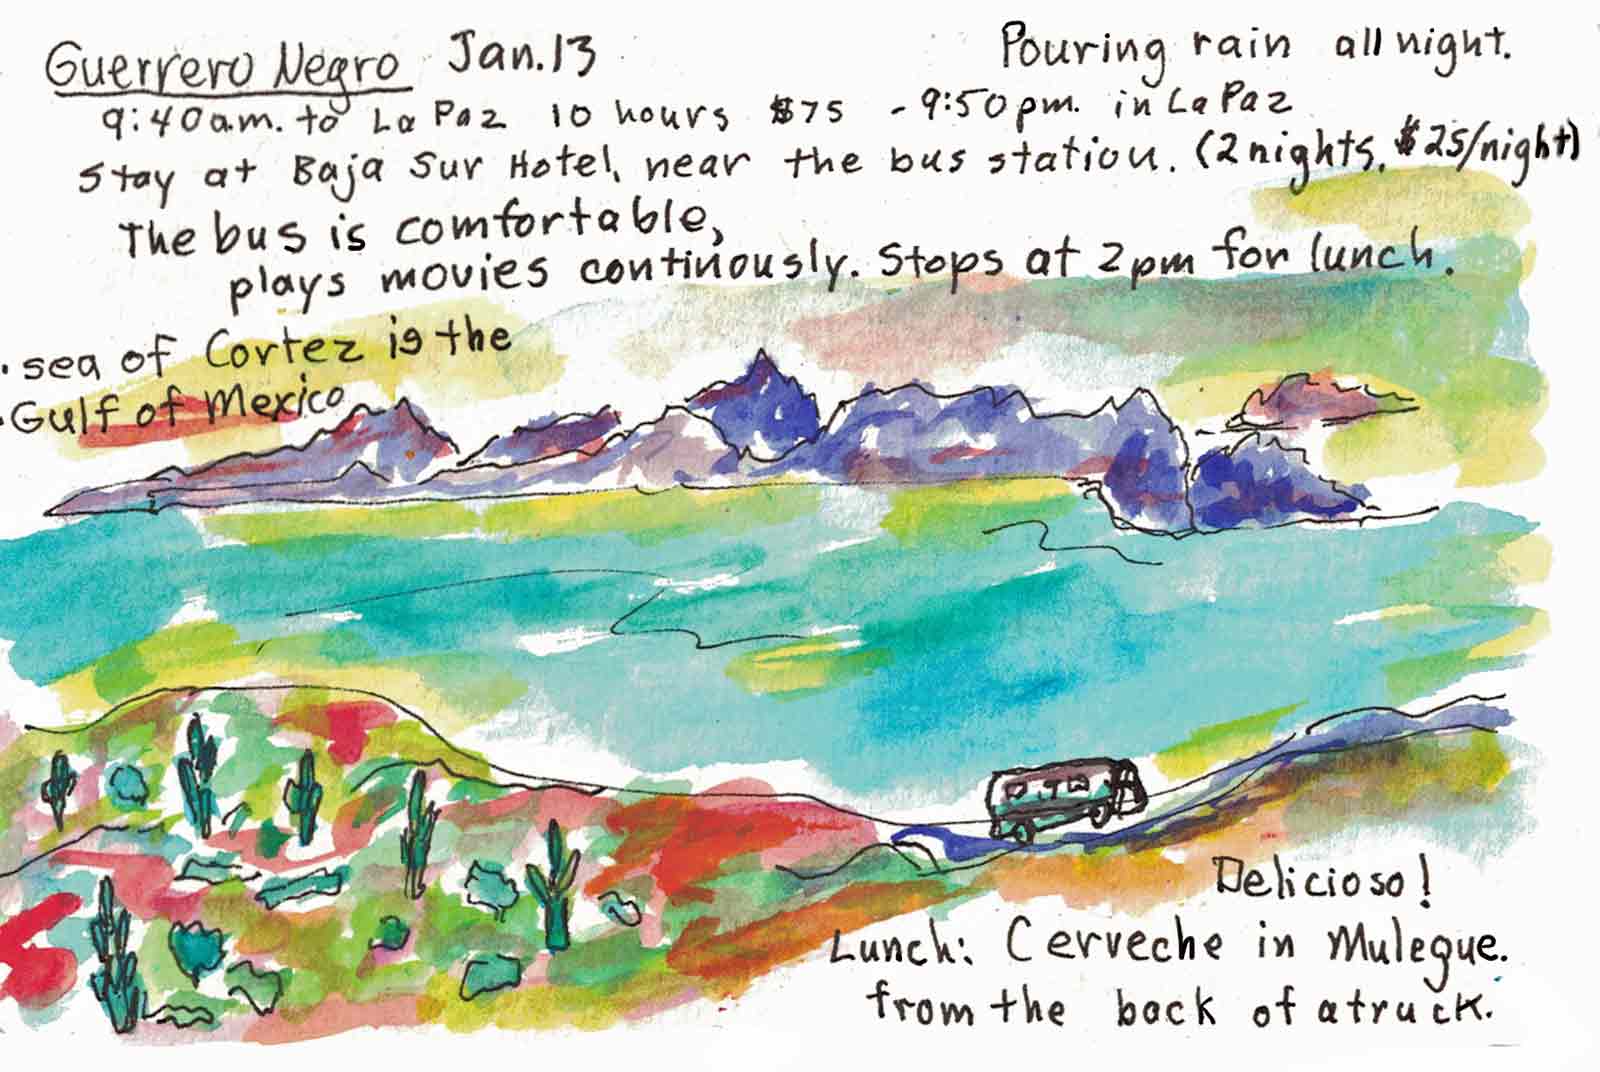 Guerrero Negro Jan.13
Pouring rain all night.
9:40a.m. to La Paz 10 hours $75 - 9:50pm. in La Paz
Stay at Baja Sur Hotel, near the bus station. (2 nights, $25/night)
The bus is comfortable,
plays movies continously. Stops at 2pm for lunch.
· sea of Cortez is the
· Gulf of Mexico
Delicioso!
Lunch: Cerveche in Mulegue.
from the back of a truck.